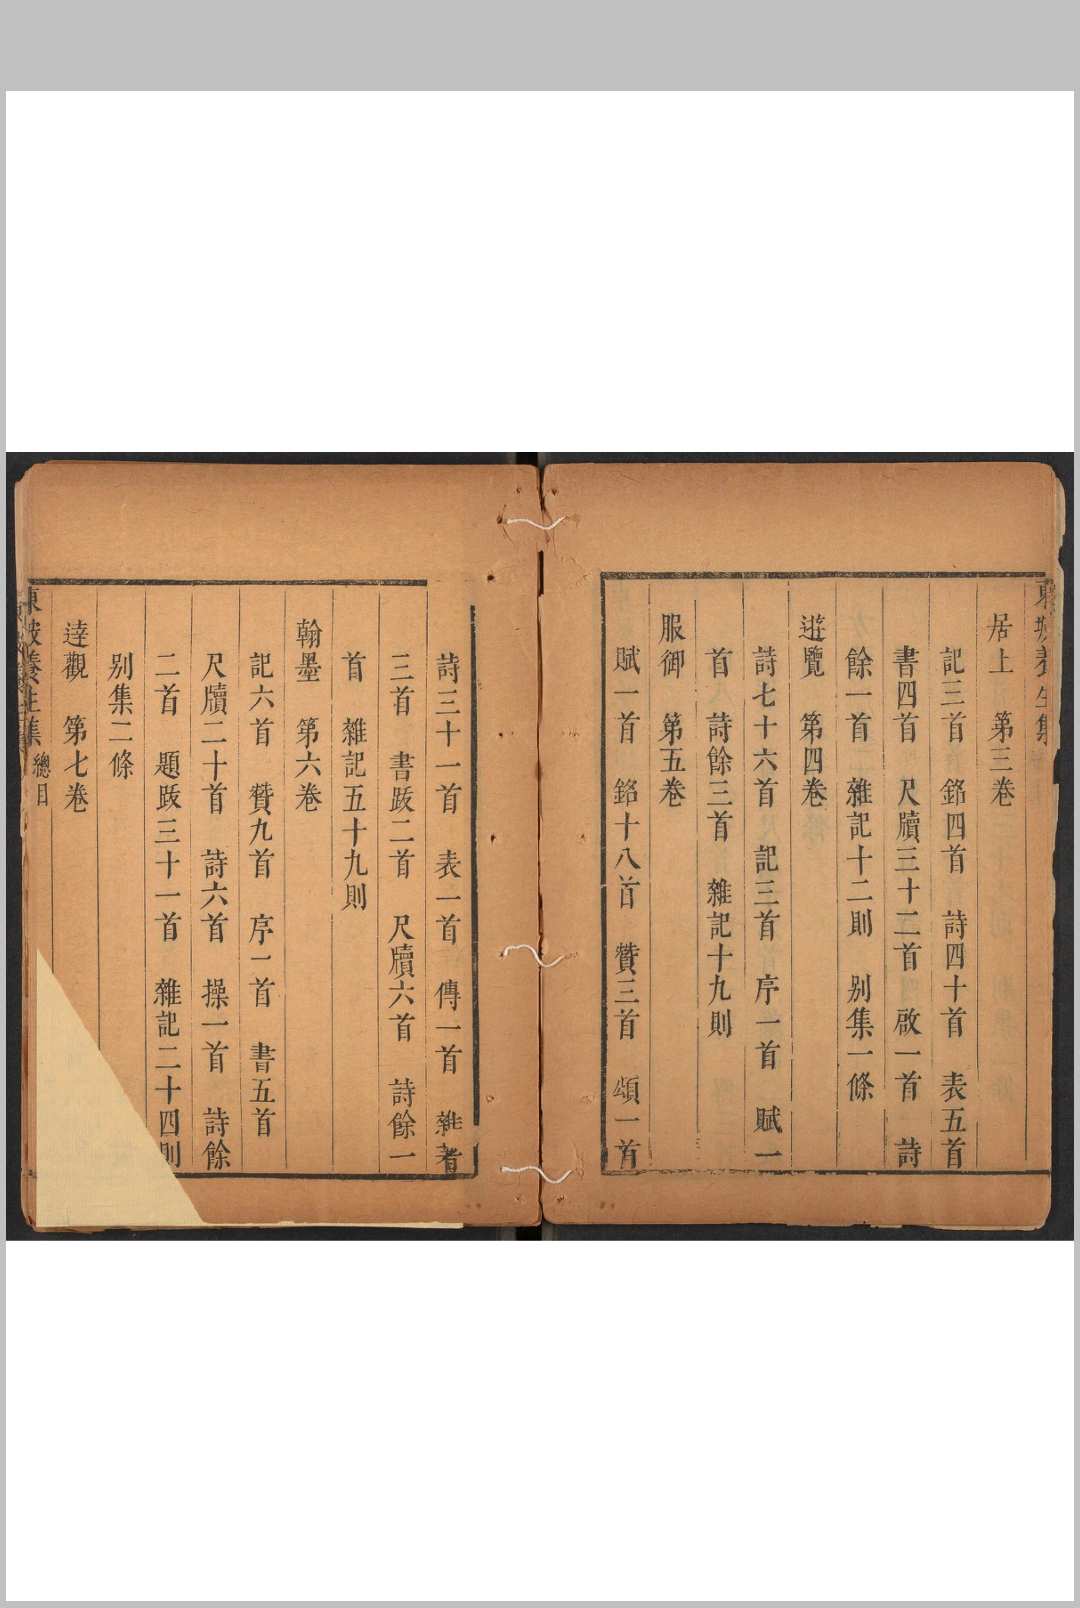 東坡養生集
居上　第三卷
記三首　銘四首　詩四十首　表五首
書四首　尺牘三十二首　啟一首　詩
餘一首　雜記十二則　别集一條
遊覽　第四卷
詩七十六首　記三首　序一首　賦一
首　詩餘三首　雜記十九則
服御　第五卷
賦一首　銘十八首　贊三首　頌一首
詩三十一首　表一首　傳一首　雜著
三首　書跋二首　尺牘六首　詩餘一
首　雜記五十九則
翰墨　第六卷
記六首　贊九首　序一首　書五首
尺牘二十首　詩六首　操一首　詩餘
二首　題跋三十一首　雜記二十四則
别集二條
達觀　第七卷
東坡養生集　總目